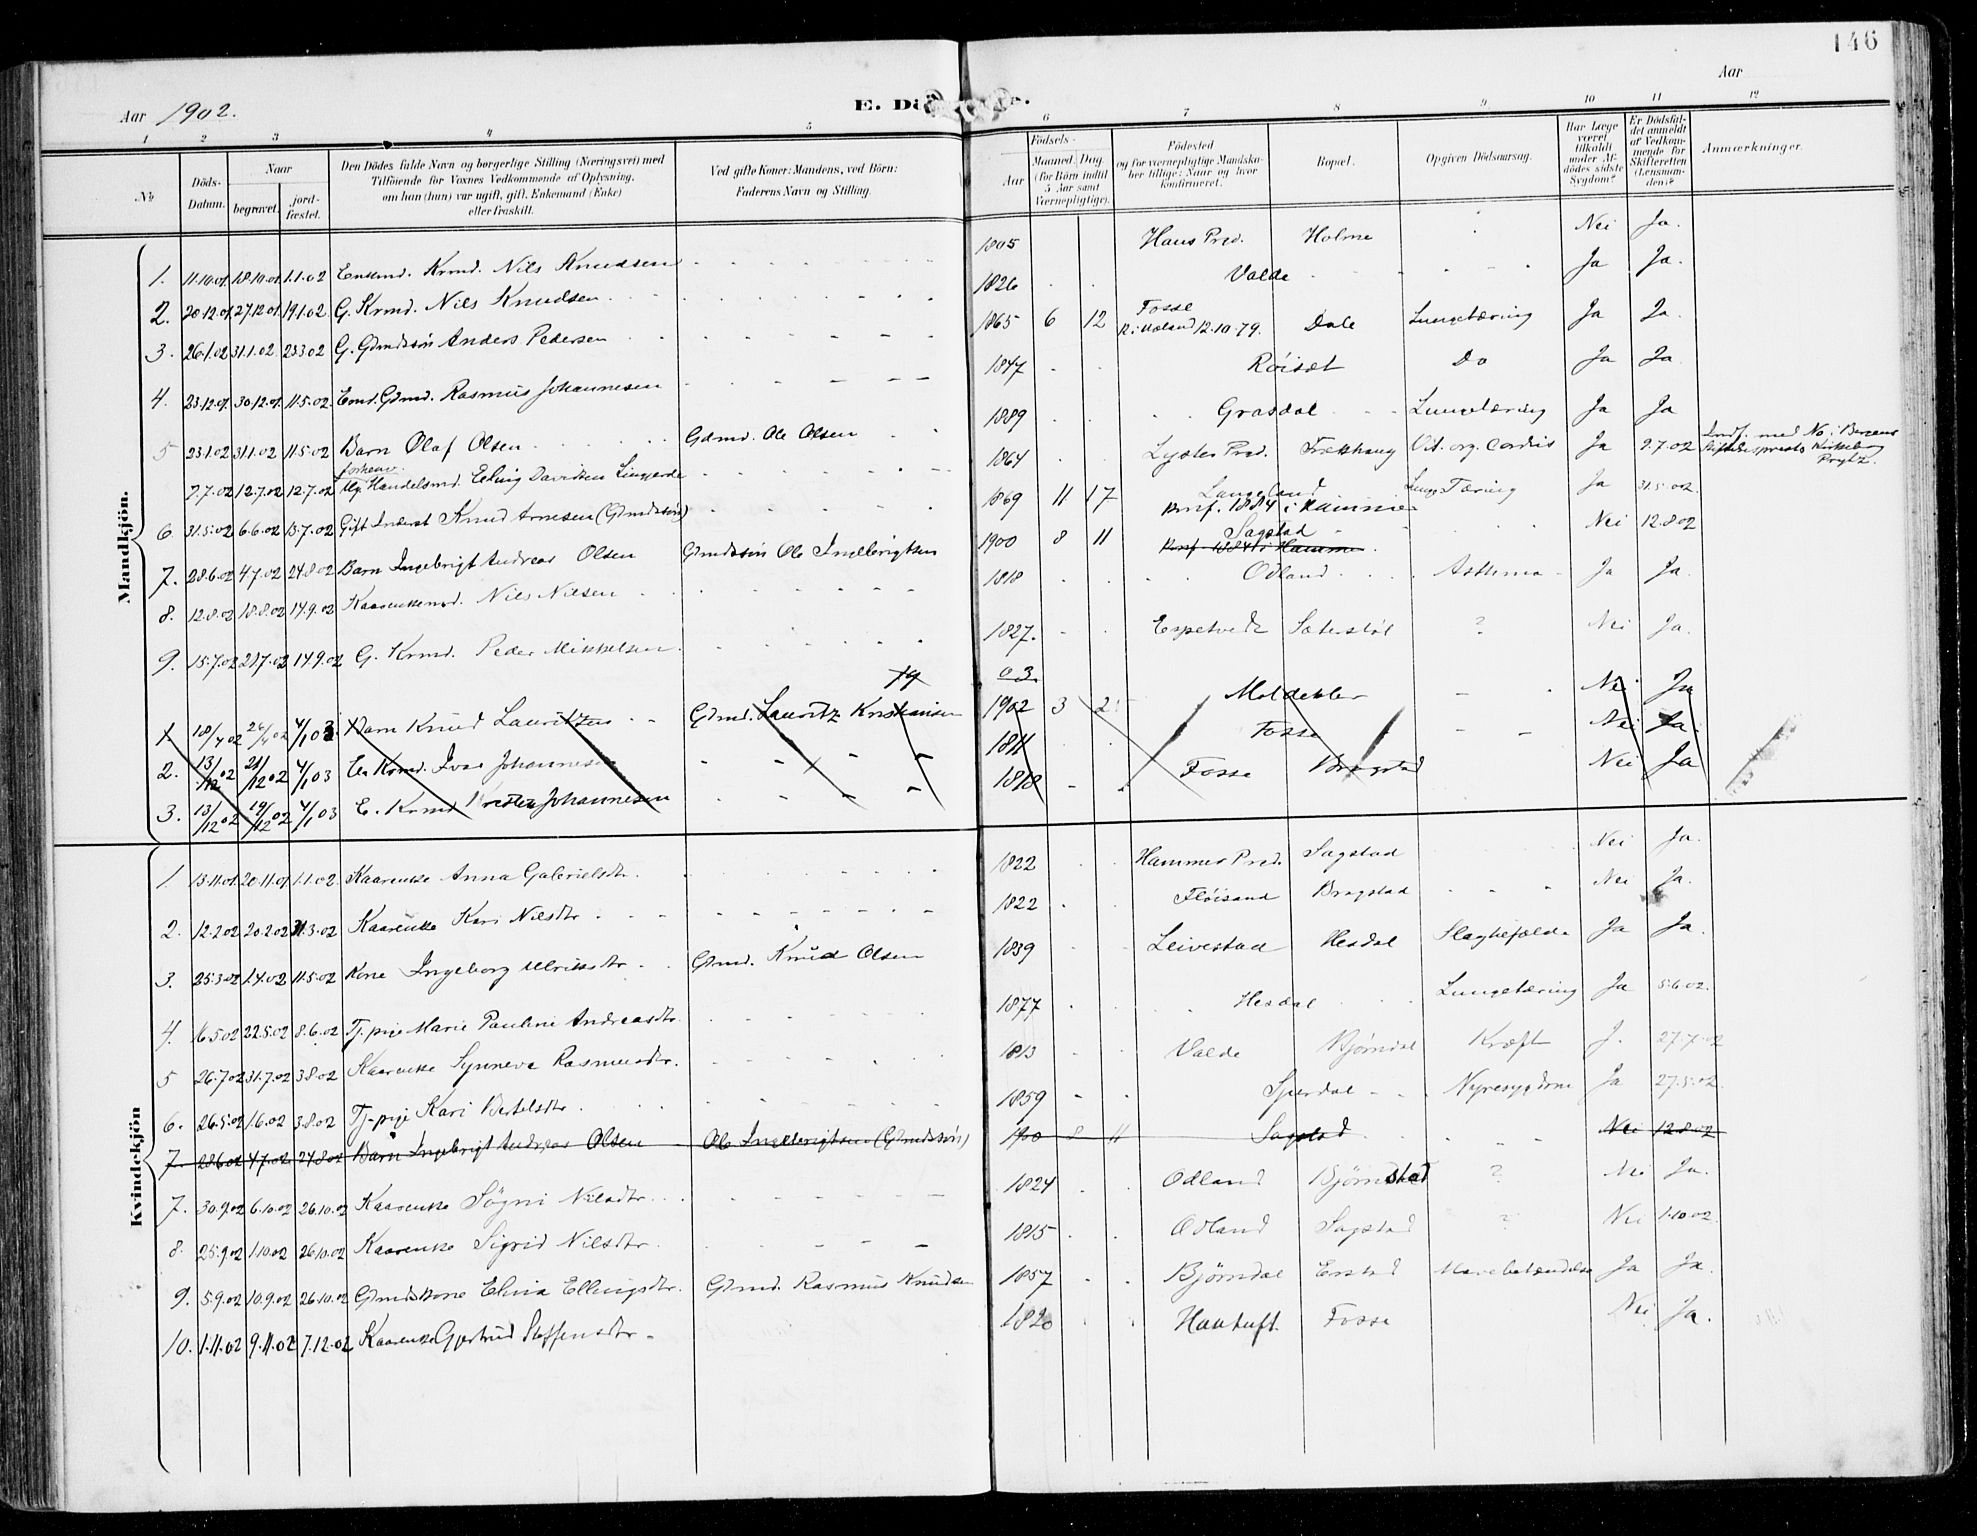 146
Aar 1902.
E. Dö
Aar
1 2 3 4 5 6 7 8 9 10 11 12
No Döds-Datum. Naar begravet. jord-fæstet. Den Dödes fulde Navn og borgerlige Stilling (Næringsvei) med Tilföiende for Voxnes Vedkommende af Oplysning, om han (hun) var ugift, gift, Enkemand (Enke) eller fraskilt. Ved gifte Koner: Mandens, ved Börn: Faderens Navn og Stilling. Födsels- Aar Maaned. Dag. (for Børn indtil 5 Aar samt Værnepligtige). Födested og for værnepligtige Mandskaber tillige: Naar og hvor konfirmeret. Bopæl. Opgiven Dödsaarsag. Har Læge været tilkaldt under Afdödes sidste Sygdom? Er Dödsfaldet anmeldt af Vedkommende for Skifteretten (Lensmanden)? Anmærkninger.
Mandkjön.
1. 11.10.01 18.10.01 1.1.02 Enkemd. Krmd. Nils Knudsen 1805 Haus Pred. Holme Nei Ja.
2. 20.12.01 27.12.01 19.1.02 G. Krmd. Nils Knudsen 1826 Valde Ja Ja.
3. 26.1.02 31.1.02 23.3.02 G. Gdmdssön Anders Pedersen 1865 6 12 Fosse 12.10.79. Dale Lungetæring Ja Ja.
4. 23.12.01 30.12.01 11.5.02 Emd. Gdmd. Rasmus Johannesen 1847 Röiset Do Ja Ja.
5 23.1.02 31.1.02 11.5.02 Barn Olaf Olsen Gdmd. Ole Olsen 1889 Grasdal Lungetæring Ja Ja
9.7.02 12.7.02 12.7.02 forhenv. Ug. Handelsmd. Elling Davidsen Lingjerde 1864 Lyster Pred. Trækhaug Vit. org. cordis Ja 9.7.02 Indf. med No i Bergens Stiftelsesprests Kirkebog Prytz.
6. 31.5.02 6.6.02 13.7.02 Gift Inderst Knud Arnesen (Gdmdssön) 1869 11 17 Langeland Konf. 1884 i Hammer Lunge Tæring Ja 31.5.02.
7. 28.6.02 4.7.02 24.8.02 Barn Ingebrigt Andreas Olsen Gdmdssön Ole Ingebrigtsen 1900 8 11 Sagstad Konf. 1884 i Hammer Nei 12.8.02
8. 12.8.02 18.8.02 14.9.02 Kaarenkemd. Nils Nilsen 1818 Odland Asthma Ja Ja.
9. 15.7.02 21.7.02 14.9.02 G. Krmd. Peder Mikkelsen 1827. Espetvedt Sæterstöl ? Nei Ja.
03
1. 18/4 02 26/4 02 4/1 03 Barn Knud Lauritzen Gdmd. Lauritz Kristiansen 1902 3 Moldekler Nei Ja
2. 13/12 02 21/12 02 4/1 03 E. Krmd. Ivar Johannesen 1811 Fosse Nei Ja.
3. 13/12 02 19/12 02 4/1 03 E. Krmd. Johannesen 1818 Fosse Bragstad Nei Ja
Kvindekjön
1. 13.11.01 20.11.01 1.1.02 Kaarenke Anna Gabrielsdtr. 1822 Hammer Pred. Sagstad Nei Ja.
2. 12.2.02 20.2.02 31.3.02 Kaarenke Kari Nilsdtr 1822 Flöisand Bragstad Nei Ja.
3. 25.3.02 1.4.02 11.5.02 Kone Ingeborg Ulriksdtr. Gdmd. Knud Olsen 1839 Leivestad Hesdal Slagtilfælde Ja Ja.
4. 16.5.02 22.5.02 8.6.02 Tj.pige Marie Pauline Andreasdtr. 1877 Hesdal Lungetæring Ja 5.6.02.
5 26.7.02 31.7.02 3.8.02 Kaarenke Synneva Rasmusdtr. 1813 Valde Bjørndal Kræft J. 27.7.02
6. 26.5.02 1.6.02 3.8.02 Tj-pige Kari Bertelsdtr. 1859 Sperdal Nyresygdom Ja 27.5.02.
7. 28.6.02 4.7.02 24.8.02 Barn Ingebrigt Andreas Olsen Ole Ingebrigtsen (Gdmdssön) 1900 8 11 Sagstad Nei 12.8.02
7. 30.9.02 6.10.02 26.10.02 Kaarenke Sögni Nilsdtr. 1824 Odland Bjørnstad ? Nei Ja.
8. 25.9.02 1.10.02 26.10.02 Kaarenke Sigrid Nilsdtr. 1815 Odland Sagstad ? Nei 1.10.02.
9. 5.9.02 10.9.02 26.10.02 Gdmdskone Elina Ellingsdtr. Gdmd. Rasmus Knudsen 1857 Bjørndal Erstad Mavebetændelse Ja Ja.
10. 1.11.02 9.11.02 7.12.02 Kaarenke Gjertrud Steffensdtr. 1820 Hantuft Fosse Nei Ja.